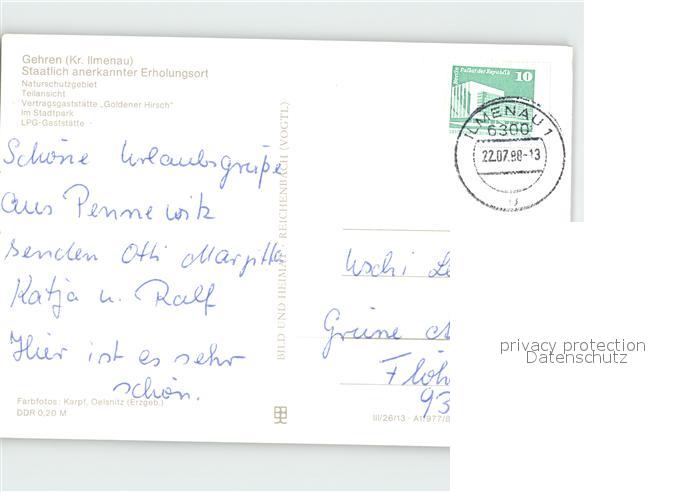 Gehren (Kr. Ilmenau)
Staatlich anerkannter Erholungsort
Naturschutzgebiet
Teilansicht
Vertragsgaststätte „Goldener Hirsch“
Im Stadtpark
LPG-Gaststätte
Berlin Palast der Republik 10
ILMENAU 1
6300
22.07.88-13
Schöne Urlaubsgrüße
aus Pennewitz
senden Otti Margitta
Katja u. Ralf
Hier ist es sehr
schön.
BILD UND HEIMAT · REICHENBACH (VOGTL)
Uschi
Grüne
Flöh
93
Farbfotos: Karpf, Oelsnitz (Erzgeb.)
DDR 0,20 M
III/26/13 · A1/977/8
privacy protection
Datenschutz